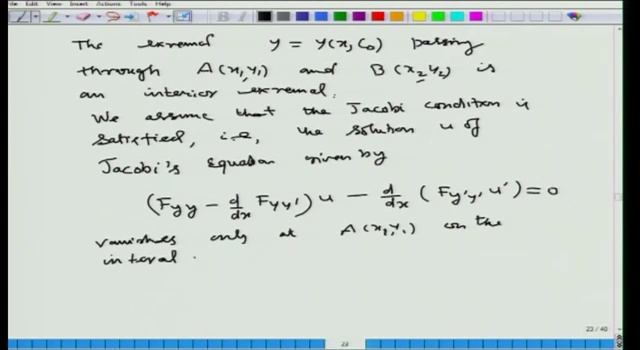 Edit View Insert Actions Tools Help
The extremal y = y(x, C0) passing
through A(x1, y1) and B(x2, y2) is
an interior extremal.
We assume that the Jacobi condition is
satisfied, i.e., the solution u of
Jacobi's Equation given by
(Fyy - d/dx Fyy') u - d/dx (Fy'y' u') = 0
vanishes only at A(x1, y1) on the
interval.
23 / 40
23